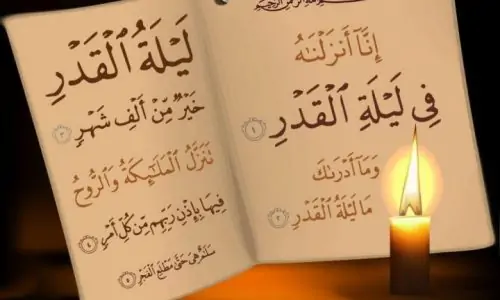 بسم الله الرحمن الرحيم
إِنَّآ أَنزَلْنَٰهُ
فِي لَيْلَةِ ٱلْقَدْرِ ١
وَمَآ أَدْرَىٰكَ
مَا لَيْلَةُ ٱلْقَدْرِ ٢
لَيْلَةُ ٱلْقَدْرِ
خَيْرٌ مِّنْ أَلْفِ شَهْرٍ ٣
تَنَزَّلُ ٱلْمَلَٰٓئِكَةُ وَٱلرُّوحُ
فِيهَا بِإِذْنِ رَبِّهِم مِّن كُلِّ أَمْرٍ ٤
سَلَٰمٌ هِىَ حَتَّىٰ مَطْلَعِ ٱلْفَجْرِ ٥